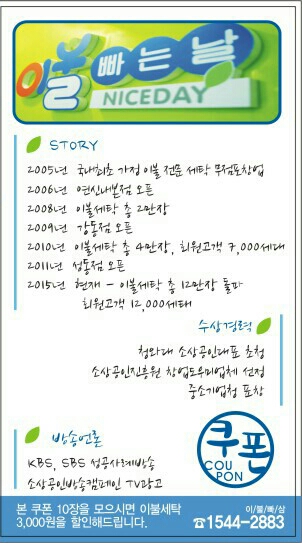 이불 빠는 날
NICEDAY
STORY
2005년 국내최초 가정 이불 전문 세탁 무점포창업
2006년 연신내본점 오픈
2008년 이불세탁 총 2만장
2009년 강동점 오픈
2010년 이불세탁 총 4만장, 회원고객 7,000세대
2011년 성동점 오픈
2015년 현재 - 이불세탁 총 12만장 돌파
회원고객 12,000세대
수상경력
청와대 소상공인대표 초청
소상공인진흥원 창업도우미업체 선정
중소기업청 표창
방송언론
KBS, SBS 성공사례방송
소상공인방송캠페인 TV광고
쿠폰
COU
PON
본 쿠폰 10장을 모으시면 이불세탁
3,000원을 할인해드립니다.
이/불/빠/삼
☎1544-2883